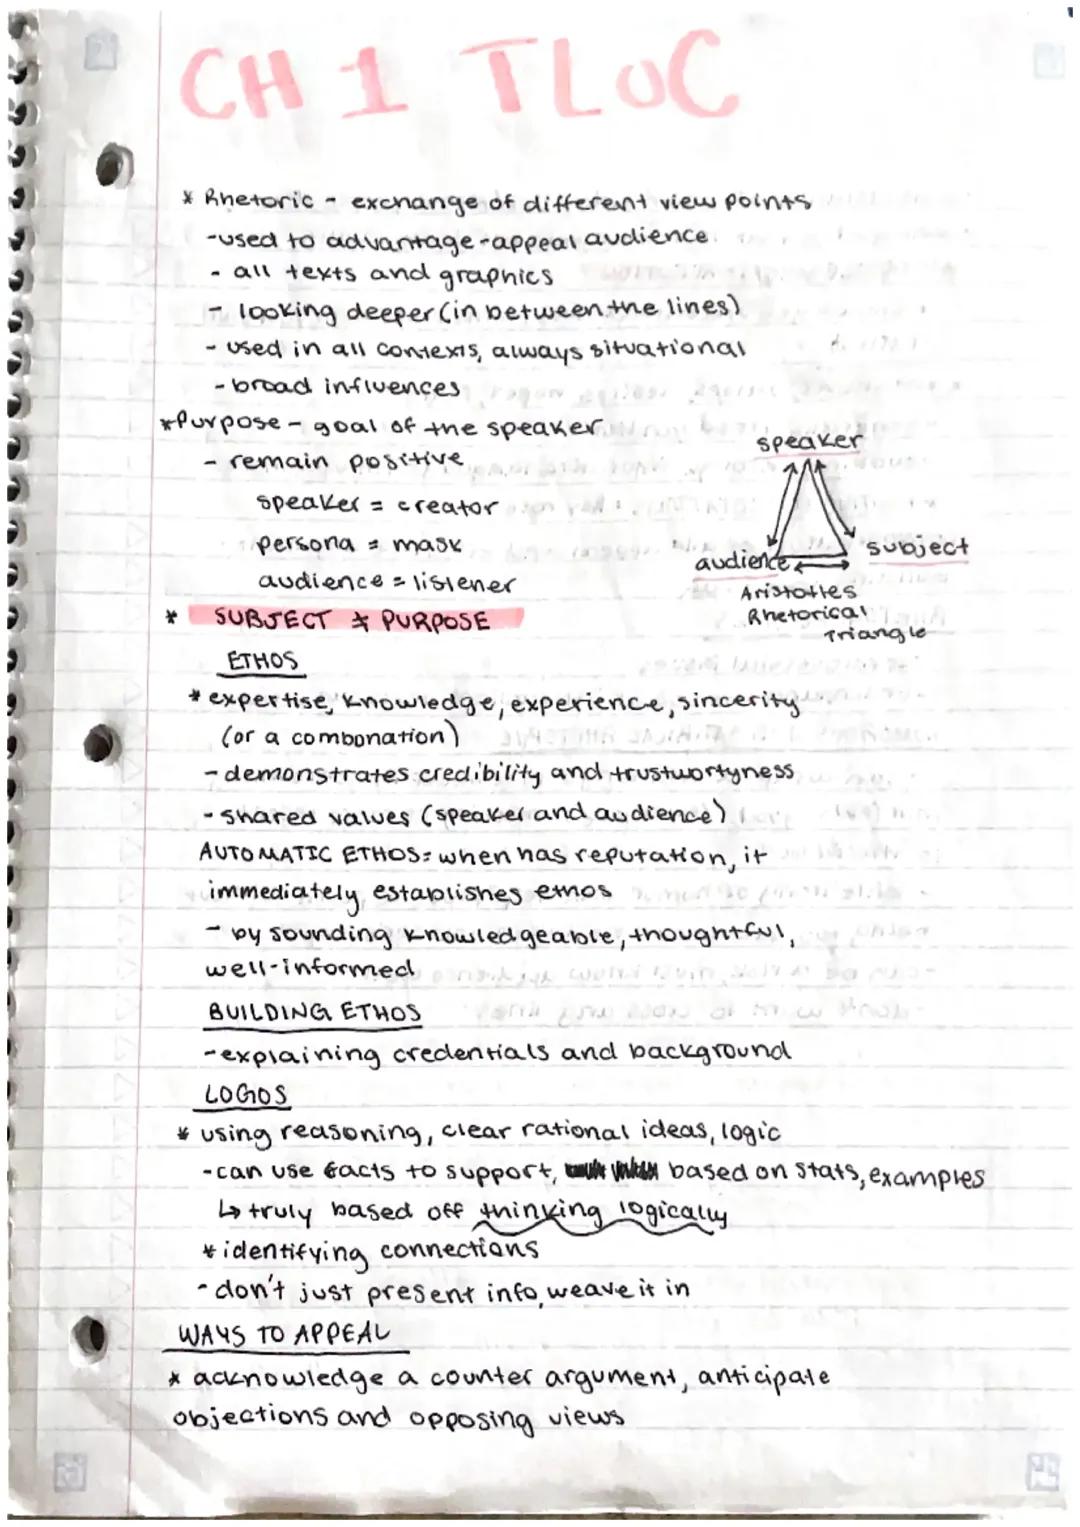 CH 1 TLOC
* Rhetoric - exchange of different view points
-used to advantage-appeal audience
- all texts and graphics
- looking deeper (in between the lines)
- used in all contexts, always situational
- broad influences
*Purpose - goal of the speaker
- remain positive
speaker = creator
persona = mask
audience = listener
speaker
audience
subject
Aristotles
Rhetorical
Triangle
* SUBJECT ≠ PURPOSE
ETHOS
* expertise, knowledge, experience, sincerity
(or a combonation)
- demonstrates credibility and trustwortyness
- shared values (speaker and audience)
AUTOMATIC ETHOS= when has reputation, it
immediately establishes ethos
- by sounding knowledgeable, thoughtful,
well-informed
BUILDING ETHOS
-explaining credentials and background
LOGOS
* using reasoning, clear rational ideas, logic
-can use facts to support, based on stats, examples
↳ truly based off thinking logically
* identifying connections
- don't just present info, weave it in
WAYS TO APPEAL
* acknowledge a counter argument, anticipate
objections and opposing views